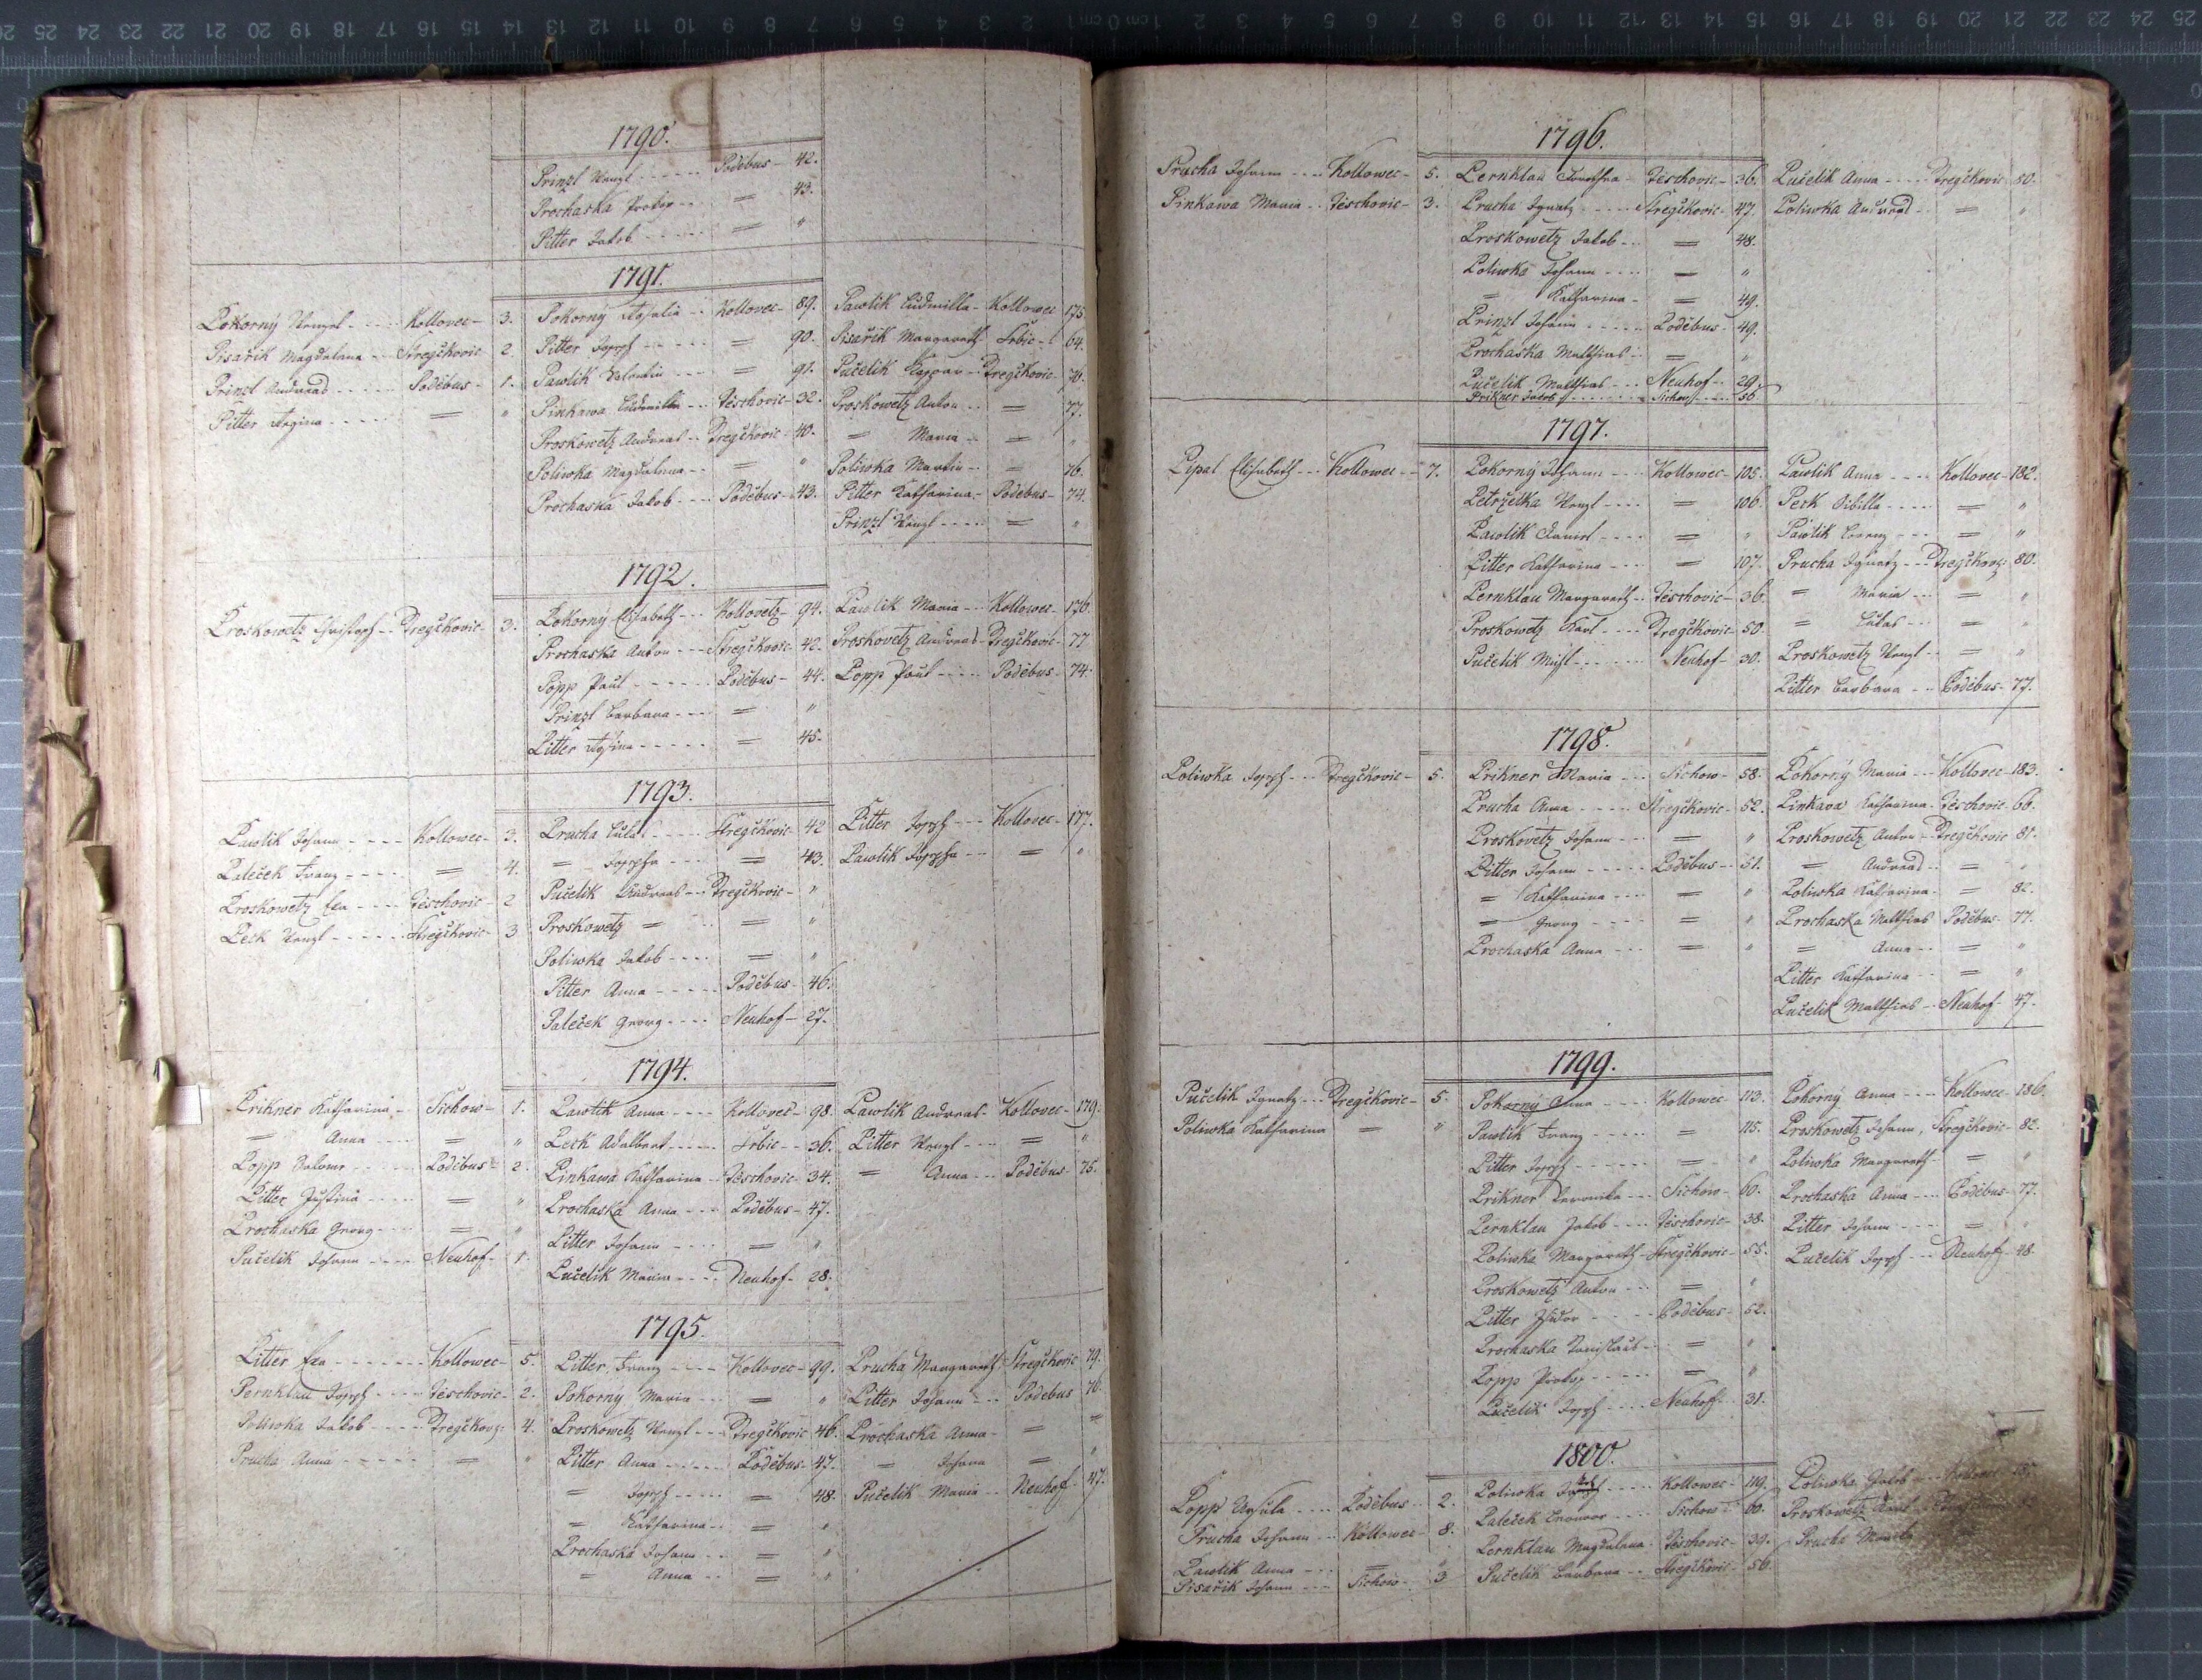 P
1790.
Prinzl Wenzl Poděbus 42.
Prochaska Prokop = 43.
Pitter Jakob = "
1791.
Pokorný Wenzel Kollovec 3. Pokorný Rosalia Kollovec 89. Pawlik Ludmilla Kollowec 175
Pisařik Magdalena Stregčkovic 2. Pitter Joseph = 90. Pisařik Margareth Srbic 64.
Prinzl Andreas Poděbus 1. Pawlik Valentin = 91. Pučelik Kaspar Tregčkovic 76.
Pitter Regina = " Pinkawa Ludmilla Těschovic 32. Proskowetz Anton = 77.
Proskowetz Andreas Tregčkovic 40. = Maria = "
Poliwka Magdalena = " Poliwka Martin = 76.
Prochaska Jakob Poděbus 43. Pitter Katharina Poděbus 74.
Prinzl Wenzl = "
1792.
Proskowetz Christoph Tregčkovic 3. Pokorný Elisabeth Kollovetz 94. Pawlik Maria Kollowec 176.
Prochaska Anton Stregčkovic 42. Proskovetz Andreas Tregčkovic 77
Popp Paul Poděbus 44. Popp Paul Poděbus 74.
Prinzl Barbara = "
Pitter Rosina = 45.
1793.
Pawlik Johann Kollowec 3. Prucha Lukas Stregčkovic 42 Pitter Joseph Kollovec 177.
Paleček Franz = 4. = Josepha = 43. Pawlik Josepha = "
Proskowetz Eva Těschovic 2 Pučelik Andreas Tregčkovic "
Peck Wenzl Stregčkovic 3 Proskowetz = = "
Poliwka Jakob = "
Pitter Anna Poděbus 46.
Paleček Georg Neuhof 27.
1794.
Prikner Katharina Sichow 1. Pawlik Anna Kollovec 98. Pawlik Andreas Kollovec 179.
= Anna = " Peck Adalbert Srbic 36. Pitter Wenzl = "
Popp Salome Poděbus 2. Pinkawa Katharina Těschovic 34. = Anna Poděbus 75.
Pitter Justina = " Prochaska Anna Poděbus 47.
Prochaska Georg = " Pitter Johann = "
Pučelik Johann Neuhof 1. Pučelik Maria Neuhof 28.
1795.
Pitter Eva Kollowec 5. Pitter Franz Kollovec 99. Prucha Margareth Stregčkovic 79.
Pernklau Joseph Těschovic 2. Pokorny Maria = " Pitter Johann Poděbus 76.
Poliwka Jakob Tregčkovz 4. Proskowetz Wenzl Tregčkovic 46. Prochaska Anna = "
Prucha Anna = " Pitter Anna Poděbus 47. = Johann = "
= Joseph = 48. Pučelik Maria Neuhof 47.
= Katharina = "
Prochaska Johann = "
= Anna = "
1796.
Prucha Johann Kollowec 5. Pernklau Dorothea Těschovic 36. Pučelik Anna Tregčkovic 80.
Pinkawa Maria Těschovic 3. Prucha Ignatz Stregčkovic 47. Poliwka Andreas = "
Proskowetz Jakob = 48.
Poliwka Johann = "
= Katharina = 49.
Prinzl Johann Poděbus 49.
Prochaska Matthias = "
Pučelik Matthias Neuhof 29.
Prikner Jakob Sichow 56
1797.
Pipal Elisabeth Kollowec 7. Pokorný Johann Kollowec 105. Pawlik Anna Kollovec 182.
Petrželka Wenzl = 106. Peck Sibilla = "
Pawlik Daniel = " Pawlik Lorenz = "
Pitter Katharina = 107. Prucha Ignatz Tregčkovz 80.
Pernklau Margareth Těschovic 36. = Maria = "
Proskowetz Karl Tregčkovic 50. = Lukas = "
Pučelik Neuhof 30. Proskowetz Wenzl = "
Pitter Barbara Poděbus 77.
1798.
Poliwka Joseph Tregčkovic 5. Prikner Maria Sichow 58. Pokorný Maria Kollovec 183.
Prucha Anna Stregčkovic 52. Pinkava Katharina Těschovic 66.
Proskovetz Johann = " Proskowetz Anton Tregčkovic 81.
Pitter Johann Poděbus 51. = Andreas = "
= Katharina = " Poliwka Katharina = 82.
= Georg = " Prochaska Matthias Poděbus 77.
Prochaska Anna = " = Anna = "
Pitter Katharina = "
Pučelik Matthias Neuhof 47.
1799.
Pučelik Ignatz Tregčkovic 5. Pokorný Anna Kollowec 113. Pokorný Anna Kollowec 186.
Poliwka Katharina = " Pawlik Franz = 115. Proskowetz Johann Stregčkovic 82.
Pitter Joseph = " Poliwka Margareth = "
Prikner Veronika Sichow 60. Prochaska Anna Poděbus 77.
Pernklau Jakob Těschovic 38. Pitter Johann = "
Poliwka Margareth Stregčkovic 55. Pučelik Joseph Neuhof 48
Proskowetz Anton = "
Pitter Isidor Poděbus 52.
Prochaska = "
Popp Prokop = "
Pučelik Joseph Neuhoff 31.
1800.
Popp Ursula Poděbus 2. Poliwka Kollowec 119. Poliwka Jakob
Prucha Johann Kollowec 8. Paleček Sichow 60. Proskowetz
Pawlik Anna = " Pernklau Magdalena Těschovic 39. Prucha
Pisařik Johann Sichow 3 Pučelik Barbara Stregčkovic 56.